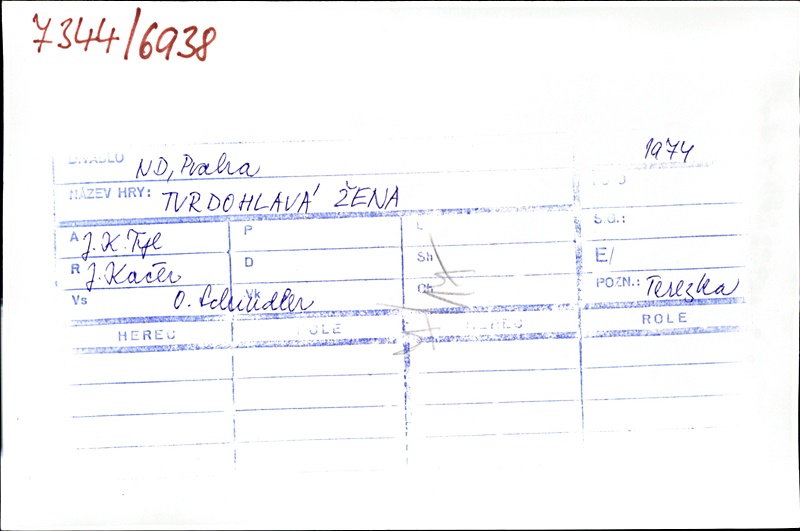 7344/6938
DIVADLO ND, Praha 1974
NÁZEV HRY: TVRDOHLAVÁ ŽENA
A J.K.Tyl P L S.G.:
R J. Kačer D Sh E/
Vs O. Schindler Vk Ch POZN.: Terezka
HEREC ROLE HEREC ROLE